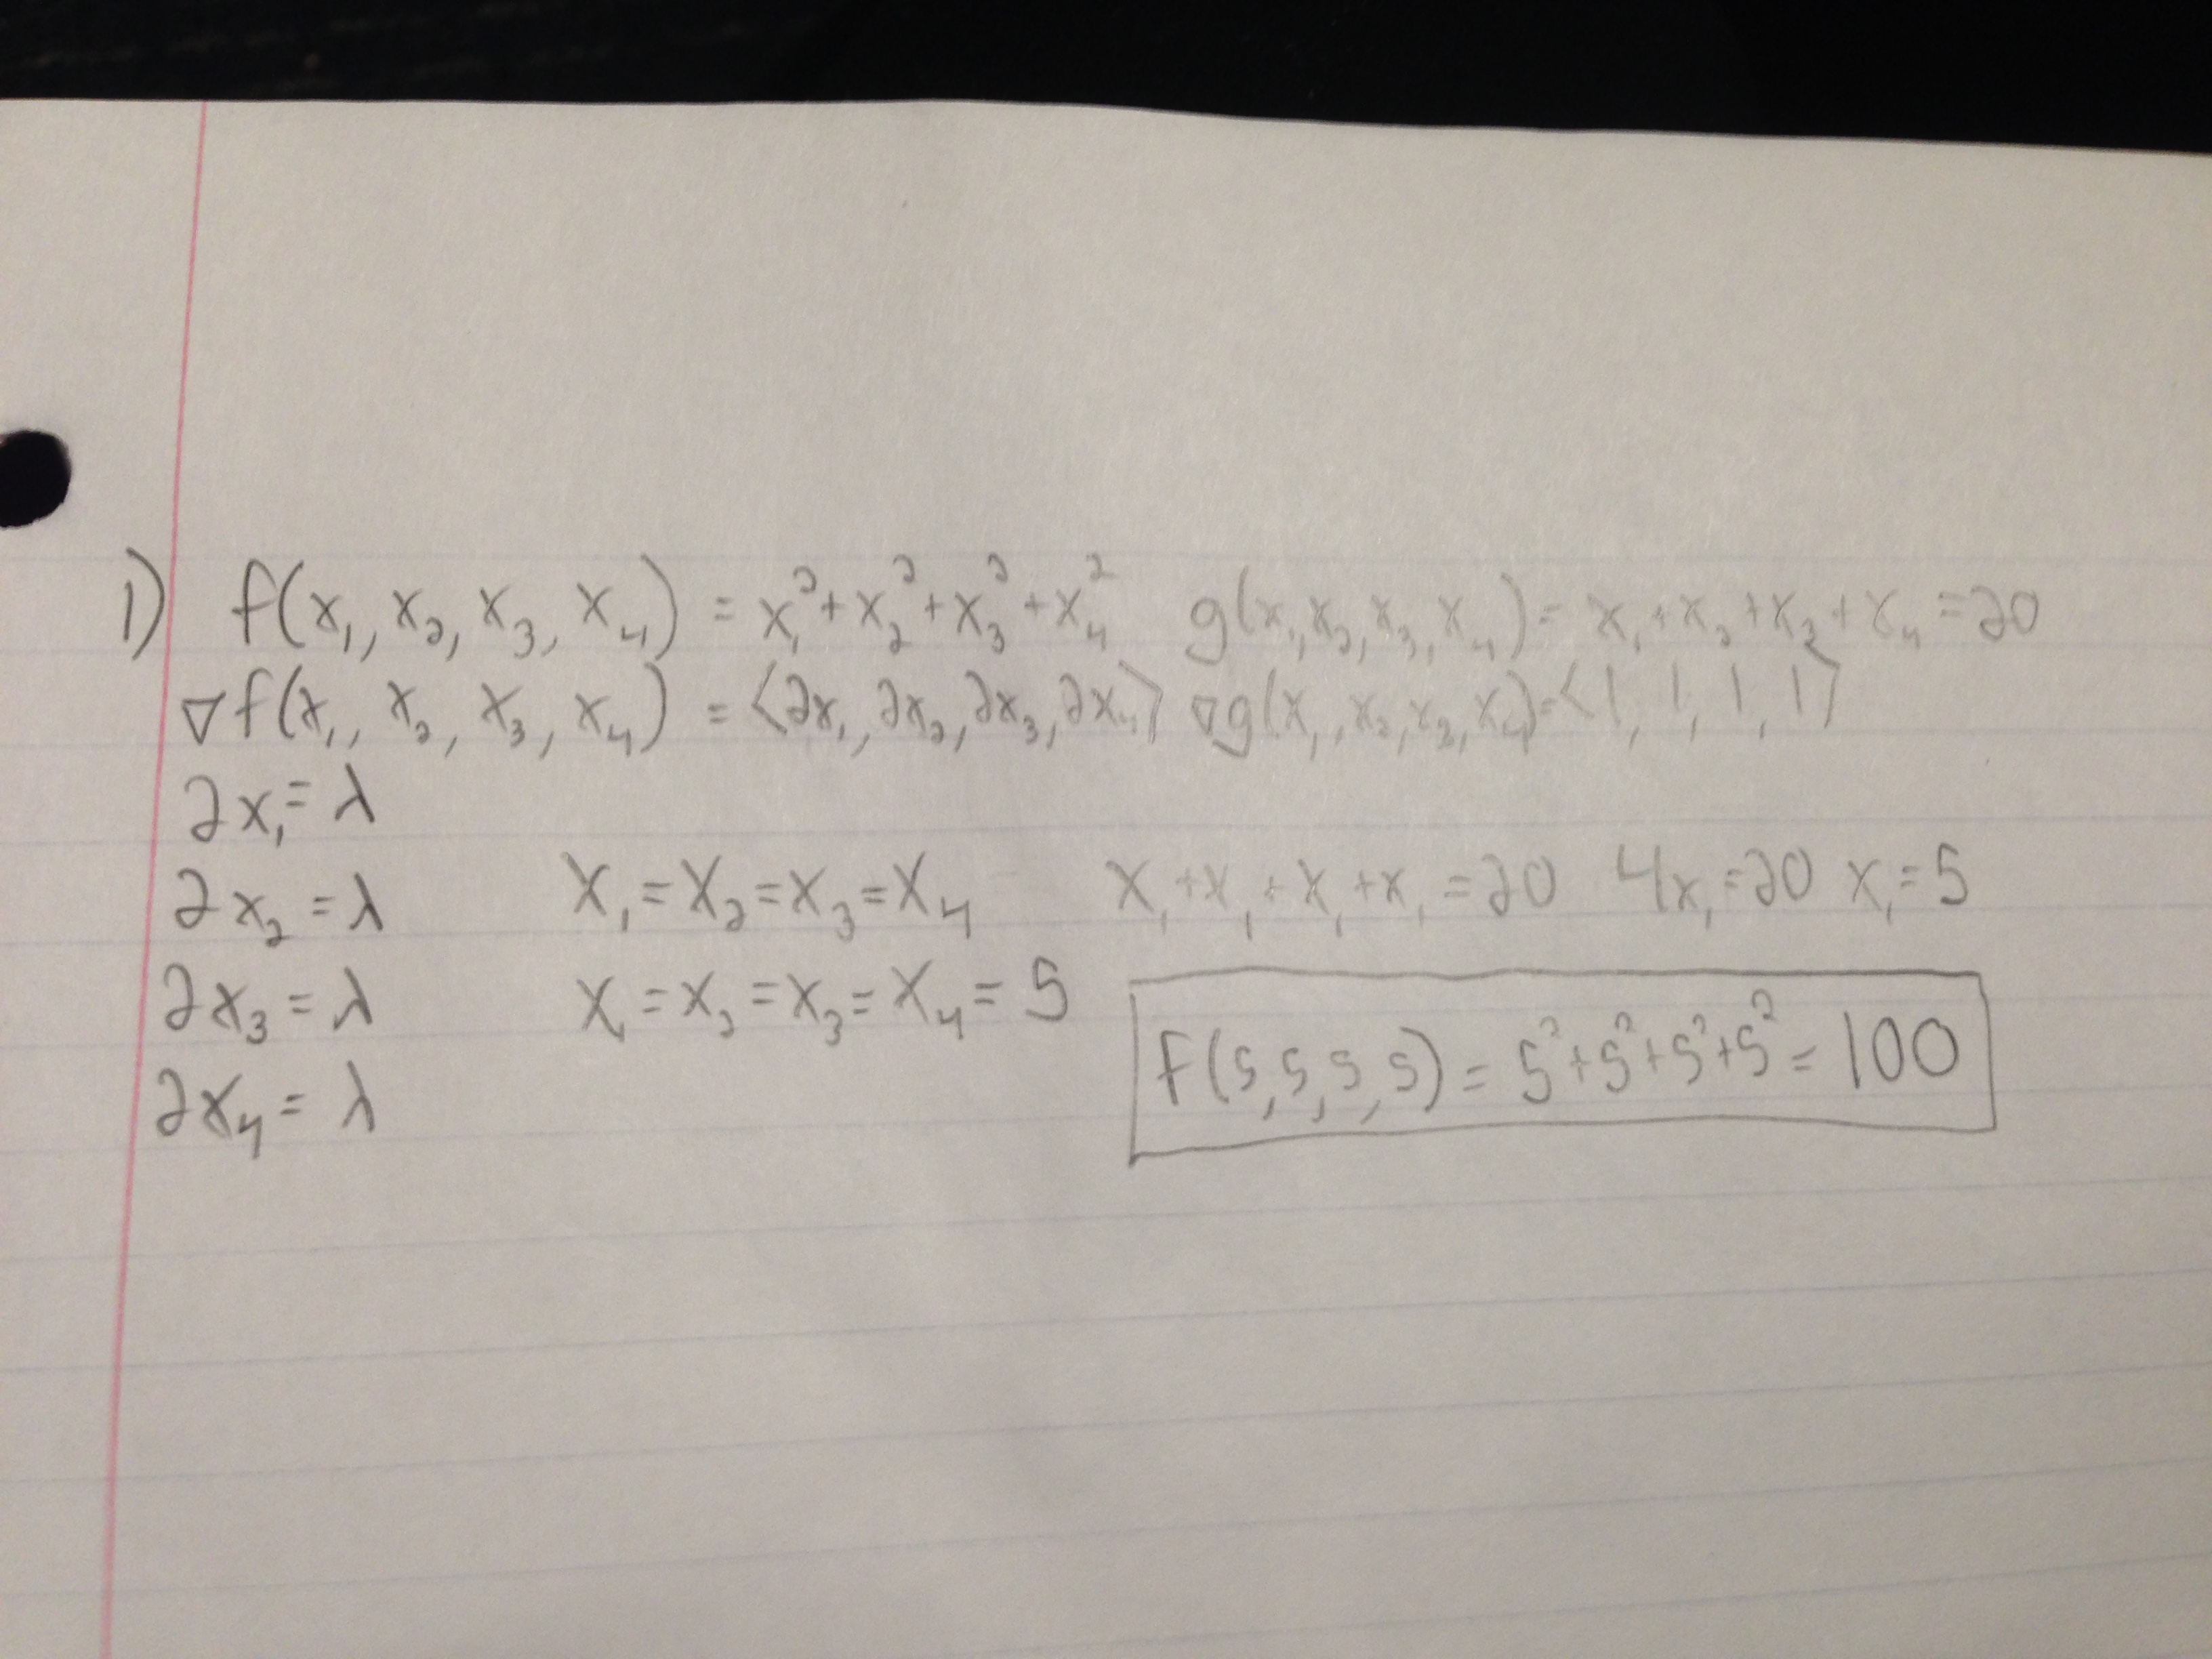 1) f(x₁, x₂, x₃, x₄) = x₁² + x₂² + x₃² + x₄² g(x₁, x₂, x₃, x₄) = x₁ + x₂ + x₃ + x₄ = 20
∇f(x₁, x₂, x₃, x₄) = ⟨2x₁, 2x₂, 2x₃, 2x₄⟩ ∇g(x₁, x₂, x₃, x₄) = ⟨1, 1, 1, 1⟩
2x₁ = λ
2x₂ = λ x₁ = x₂ = x₃ = x₄ x₁ + x₁ + x₁ + x₁ = 20 4x₁ = 20 x₁ = 5
2x₃ = λ x₁ = x₂ = x₃ = x₄ = 5
f(5, 5, 5, 5) = 5² + 5² + 5² + 5² = 100
2x₄ = λ